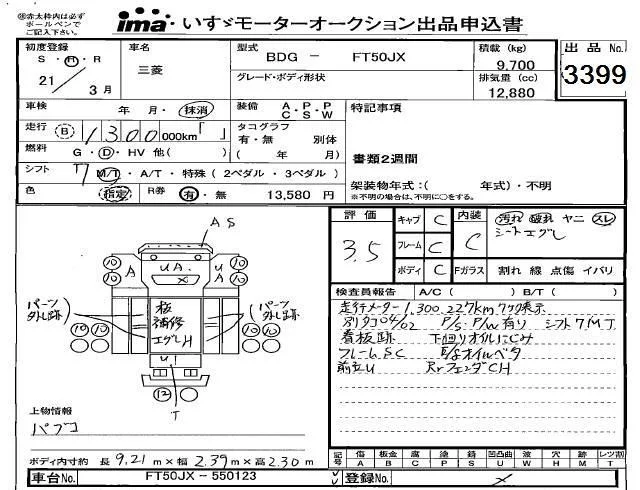 ㊟赤太枠内は必ず
ボールペンで
ご記入下さい。
ima いすゞモーターオークション出品申込書
初度登録 S・H・R 21年 3月
車名 三菱
型式 BDG － FT50JX
グレード・ボディ形状
積載 (kg) 9,700
排気量 (cc) 12,880
出品 No. 3399
車検 年 月・抹消
装備 A・P・P C S W
特記事項
走行 B 1300,000km「 」
タコグラフ 有・無 別体
( 年 月)
燃料 G・D・HV 他( )
書類2週間
シフト 7 M/T・A/T・特殊(2ペダル・3ペダル)
架装物年式:( 年式)・不明
※不明の場合は、不明に○をする。
色 指定 R券 有・無 13,580 円
評価 3.5
キャブ C
フレーム C
ボディ C
内装 C
汚れ 破れ ヤニ スレ
シートエグレ
Fガラス 割れ 線 点傷 イバリ
検査員報告 A/C( ) B/T( )
走行メーター1,300,227km
P/S・P/W有り シフト7MT
看板跡 下回りオイルにじみ
フレームSC E/gオイルベタ
RrフェンダCH
AS
10 10 A UA. U A 10 10
パーツ外し跡
板補修エグレH
パーツ外し跡
10 10
U1
12
T
上物情報
パブコ
ボディ内寸約 長 9.21 m×幅 2.39 m×高 2.30 m
記号 傷 A 板金 B 腐 C 塗 P 錆 S 凹凸曲 U 波 W 穴 H 跡 M レツ割 T
車台No. FT50JX－550123
登録No.